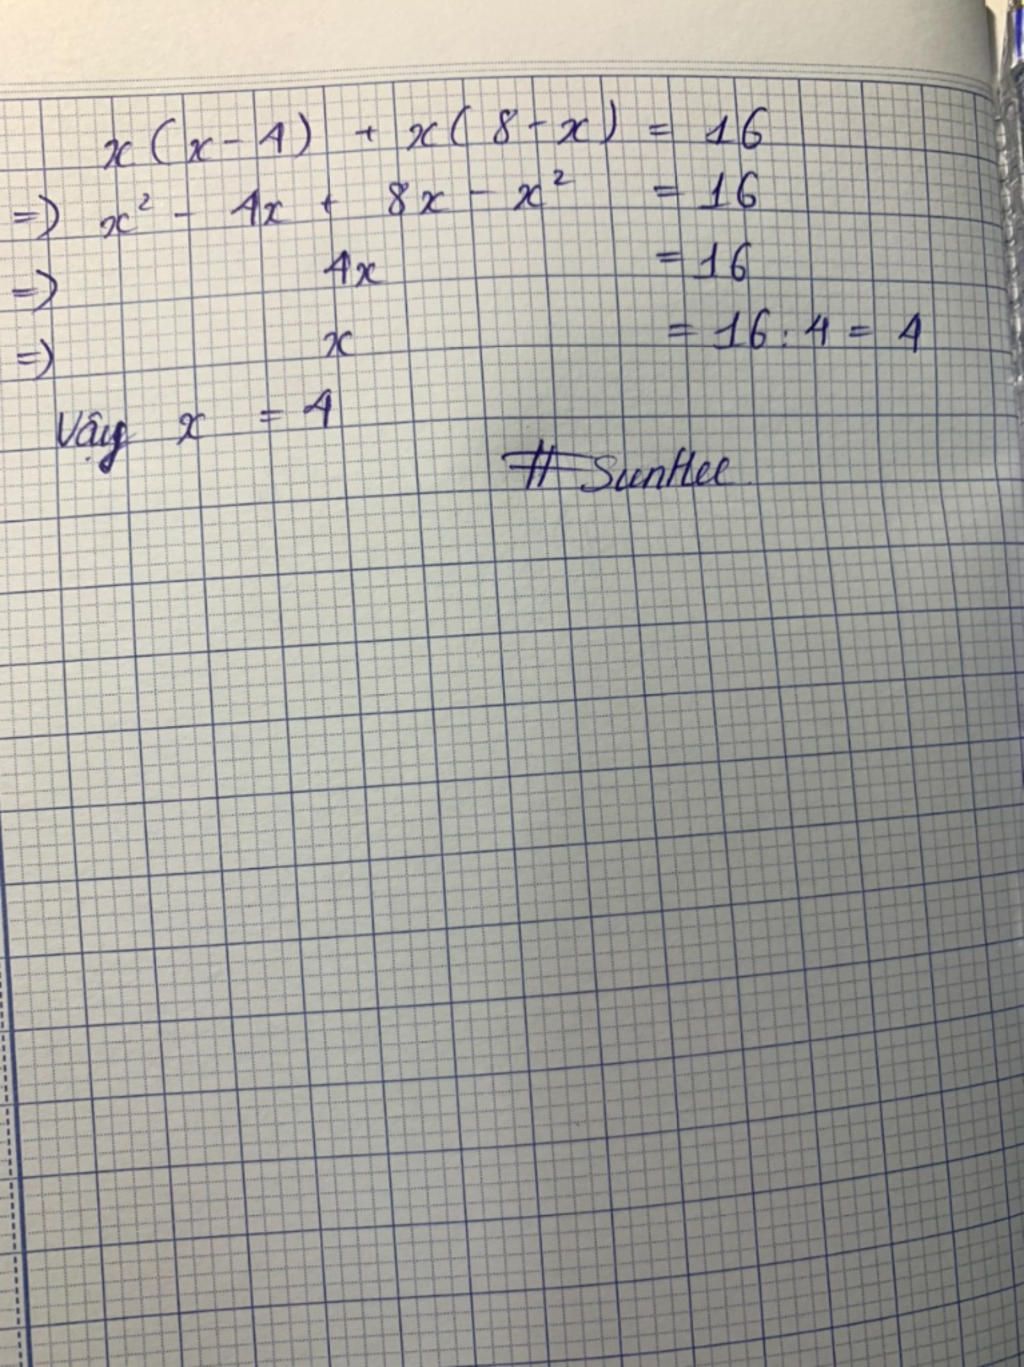 x(x-4) + x(8-x) = 16
=) x² - 4x + 8x - x² = 16
=) 4x = 16
=) x = 16 : 4 = 4
Vậy x = 4
# SunHee